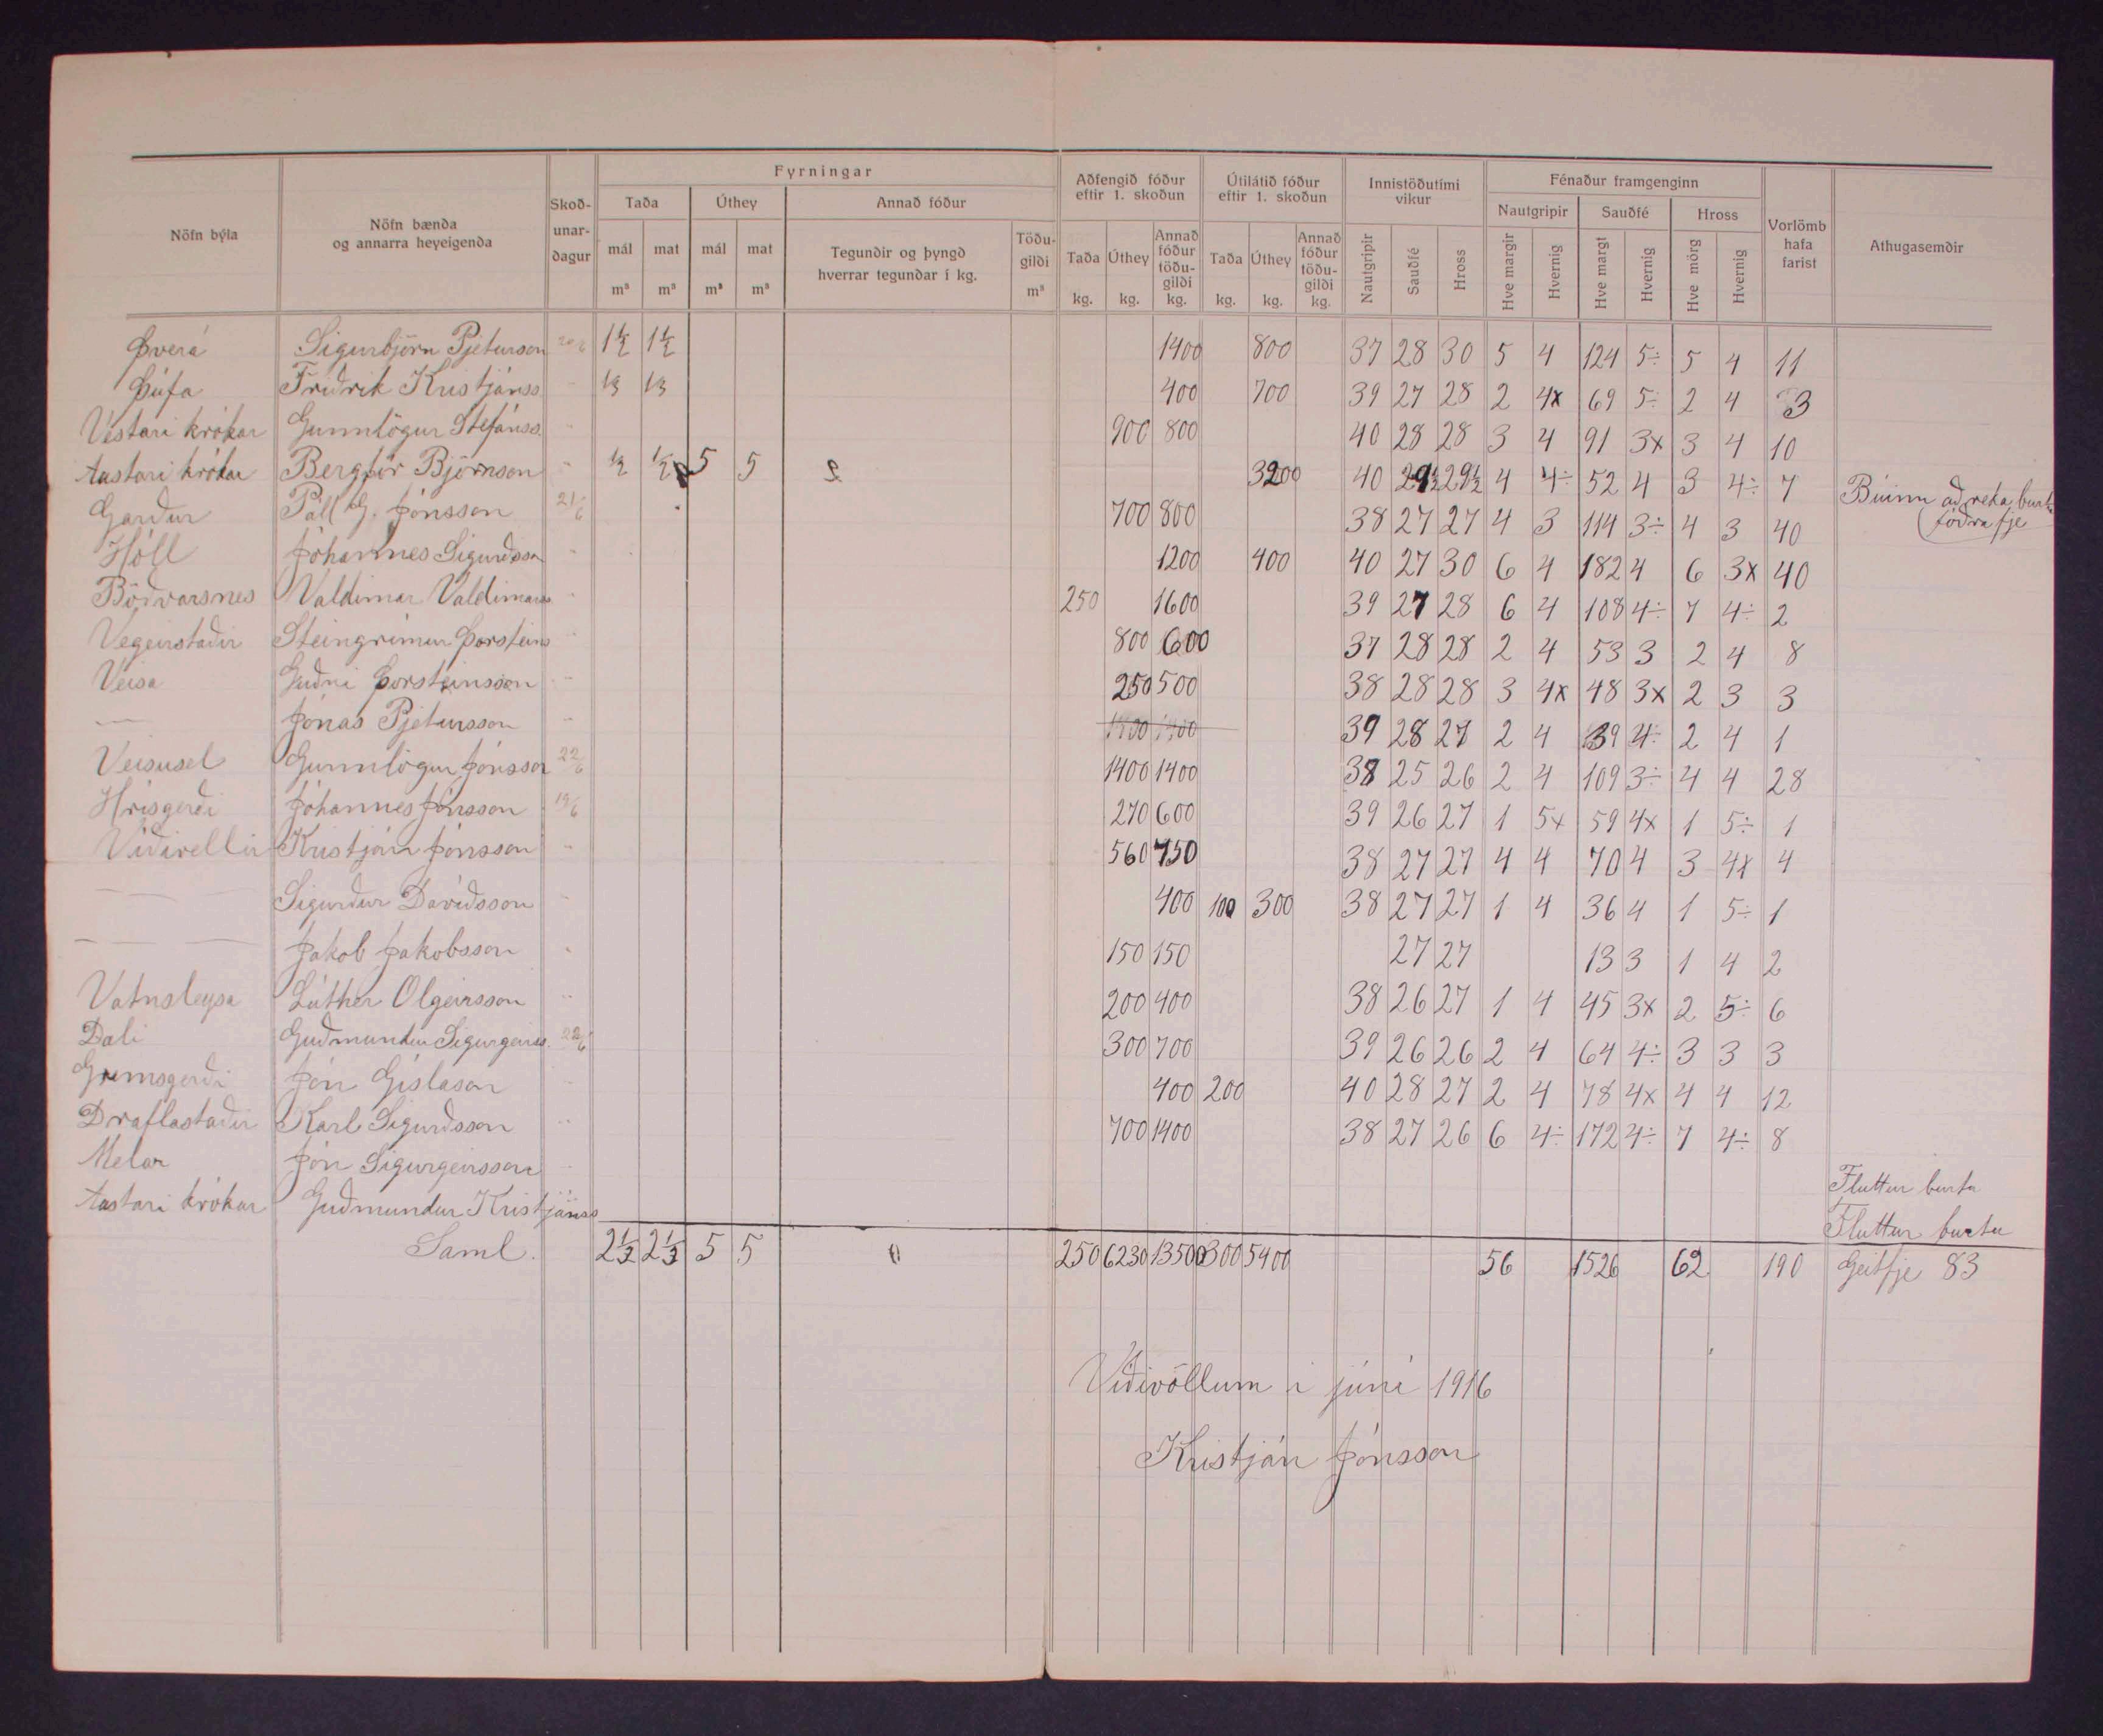 Nöfn býla | Nöfn bænda og annarra heyeigenda | Skoð-unar-dagur | Fyrningar | Aðfengið fóður eftir 1. skoðun | Útilátið fóður eftir 1. skoðun | Innistöðutími vikur | Fénaður framgenginn | Vorlömb hafa farist | Athugasemdir
Taða | Úthey | Annað fóður | Nautgripir | Sauðfé | Hross
mál m³ | mat m³ | mál m³ | mat m³ | Tegundir og þyngd hverrar tegundar í kg. | Töðu-gildi m³ | Taða kg. | Úthey kg. | Annað fóður töðu-gildi kg. | Taða kg. | Úthey kg. | Annað fóður töðu-gildi kg. | Nautgripir | Sauðfé | Hross | Hve margir | Hvernig | Hve margt | Hvernig | Hve mörg | Hvernig
Þverá Sigurbjörn Pjeturson 20/6 1½ 1½ 1400 800 37 28 30 5 4 124 5÷ 5 4 11
Þúfa Friðrik Kristjánss 1/3 1/3 400 700 39 27 28 2 4x 69 5÷ 2 4 3
Vestari krókar Gunnlögur Stefánss. 900 800 40 28 28 3 4 91 3x 3 4 10
Austari krókar Bergþór Björnson ½ ½ 5 5 3200 40 29½ 29½ 4 4÷ 52 4 3 4÷ 7 Búinn að reka burtu
Garður Páll G. Jónsson 21/6 700 800 38 27 27 4 3 114 3÷ 4 3 40 fóðrafje
Hóll Jóhannes Sigurðsson 1200 400 40 27 30 6 4 182 4 6 3x 40
Böðvarsnes Valdimar Valdimarss 250 1600 39 27 28 6 4 108 4÷ 7 4÷ 2
Vegeirstaðir Steingrímur Þorsteins 800 600 37 28 28 2 4 53 3 2 4 8
Veisa Guðni Þorsteinsson 250 500 38 28 28 3 4x 48 3x 2 3 3
— Jónas Pjetursson 1400 1400 39 28 27 2 4 39 4÷ 2 4 1
Veisusel Gunnlögur Jónsson 22/6 1400 1400 38 25 26 2 4 109 3÷ 4 4 28
Hrísgerði Jóhannes Jónsson 19/6 270 600 39 26 27 1 5x 59 4x 1 5÷ 1
Víðivellir Kristján Jónsson 560 750 38 27 27 4 4 70 4 3 4x 4
— Sigurður Davíðsson 400 100 300 38 27 27 1 4 36 4 1 5÷ 1
— — Jakob Jakobsson 150 150 27 27 13 3 1 4 2
Vatnsleysa Lúther Olgeirsson 200 400 38 26 27 1 4 45 3x 2 5÷ 6
Dali Guðmundur Sigurgeirss. 22/6 300 700 39 26 26 2 4 64 4÷ 3 3 3
Grímsgerði Jón Gíslason 400 200 40 28 27 2 4 78 4x 4 4 12
Draflastaðir Karl Sigurðsson 700 1400 38 27 26 6 4÷ 172 4÷ 7 4÷ 8
Melar Jón Sigurgeirsson Fluttur burtu
Austari krókar Guðmundur Kristjánss Fluttur burtu
Saml. 2⅓ 2⅓ 5 5 0 250 6230 13500 300 5400 56 1526 62 190 Geitfje 83
Víðivöllum í júní 1916
Kristján Jónsson